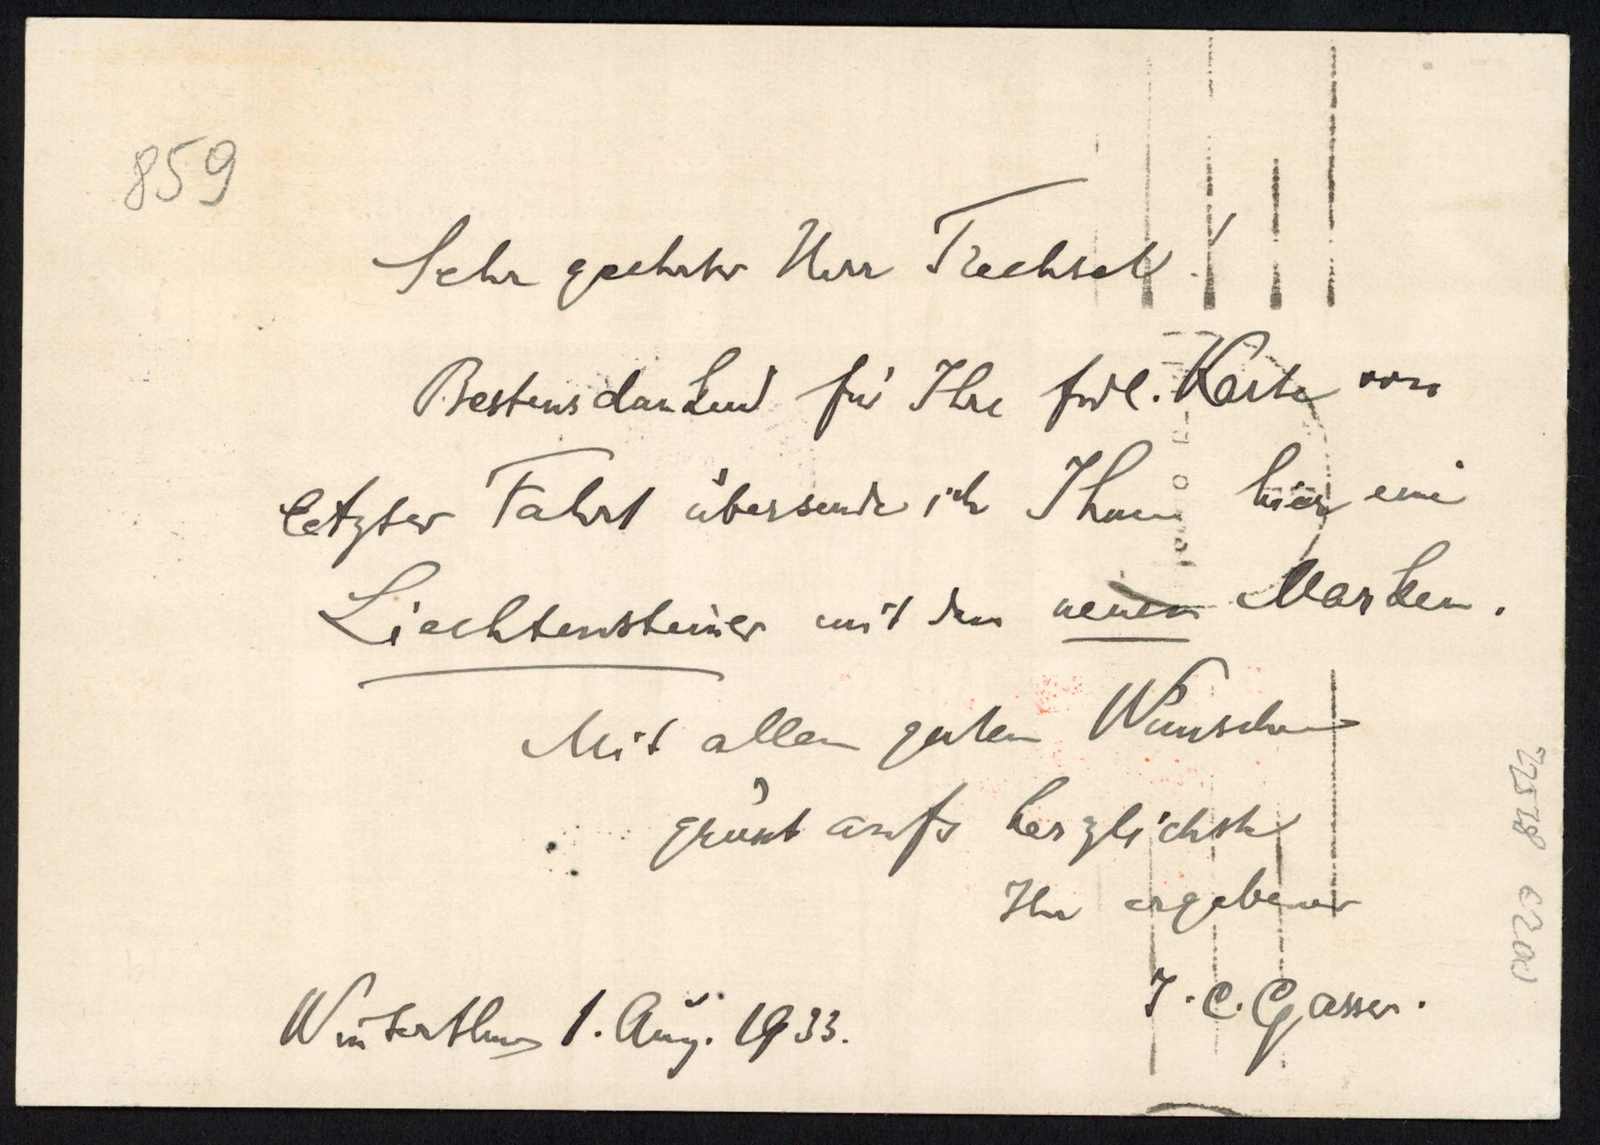 859
Sehr geehrter Herr Trechsel!
Bestens dankend für Ihre frdl. Karte von
letzter Fahrt übersende ich Ihnen hier eine
Liechtensteiner mit den neuen Marken.
Mit allen guten Wünschen
grüsst aufs herzlichste
Ihr ergebener
J. C. Gasser.
Winterthur 1. Aug. 1933.